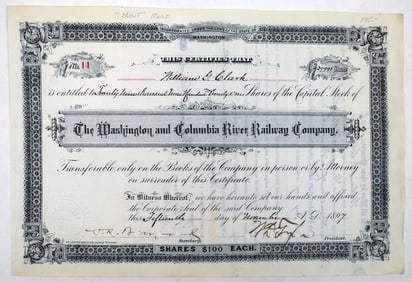 "HUNT" ROAD
INCORPORATED UNDER THE LAWS OF THE STATE
WASHINGTON.
THIS CERTIFIES THAT
No. 14
William G. Clark
is entitled to Twenty Nine Thousand Nine Hundred Ninety Shares of the Capital Stock of
The Washington and Columbia River Railway Company.
Transferable only on the Books of the Company in person or by Attorney
on surrender of this Certificate.
In Witness Whereof, we have hereunto set our hands and affixed
the Corporate Seal of the said Company
this Fifteenth day of November A.D. 1897
Secretary.
President.
SHARES $100 EACH.